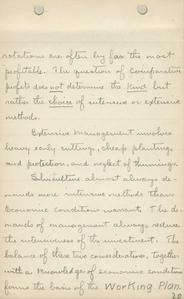 rotations are often by far the most
profitable. The question of comparative
profits does not determine the kind but
rather the choice of intensive or extensive
methods.
Extensive management involves
heavy early cutting, cheap planting,
and protection, and neglect of thinnings.
Silviculture almost always de-
mands more intensive methods than
economic conditions warrant. The de-
mands of management always reduce
the intensiveness of the investment. The
balance of these two considerations, together
with a knowledge of economic conditions
forms the basis of the Working Plan.